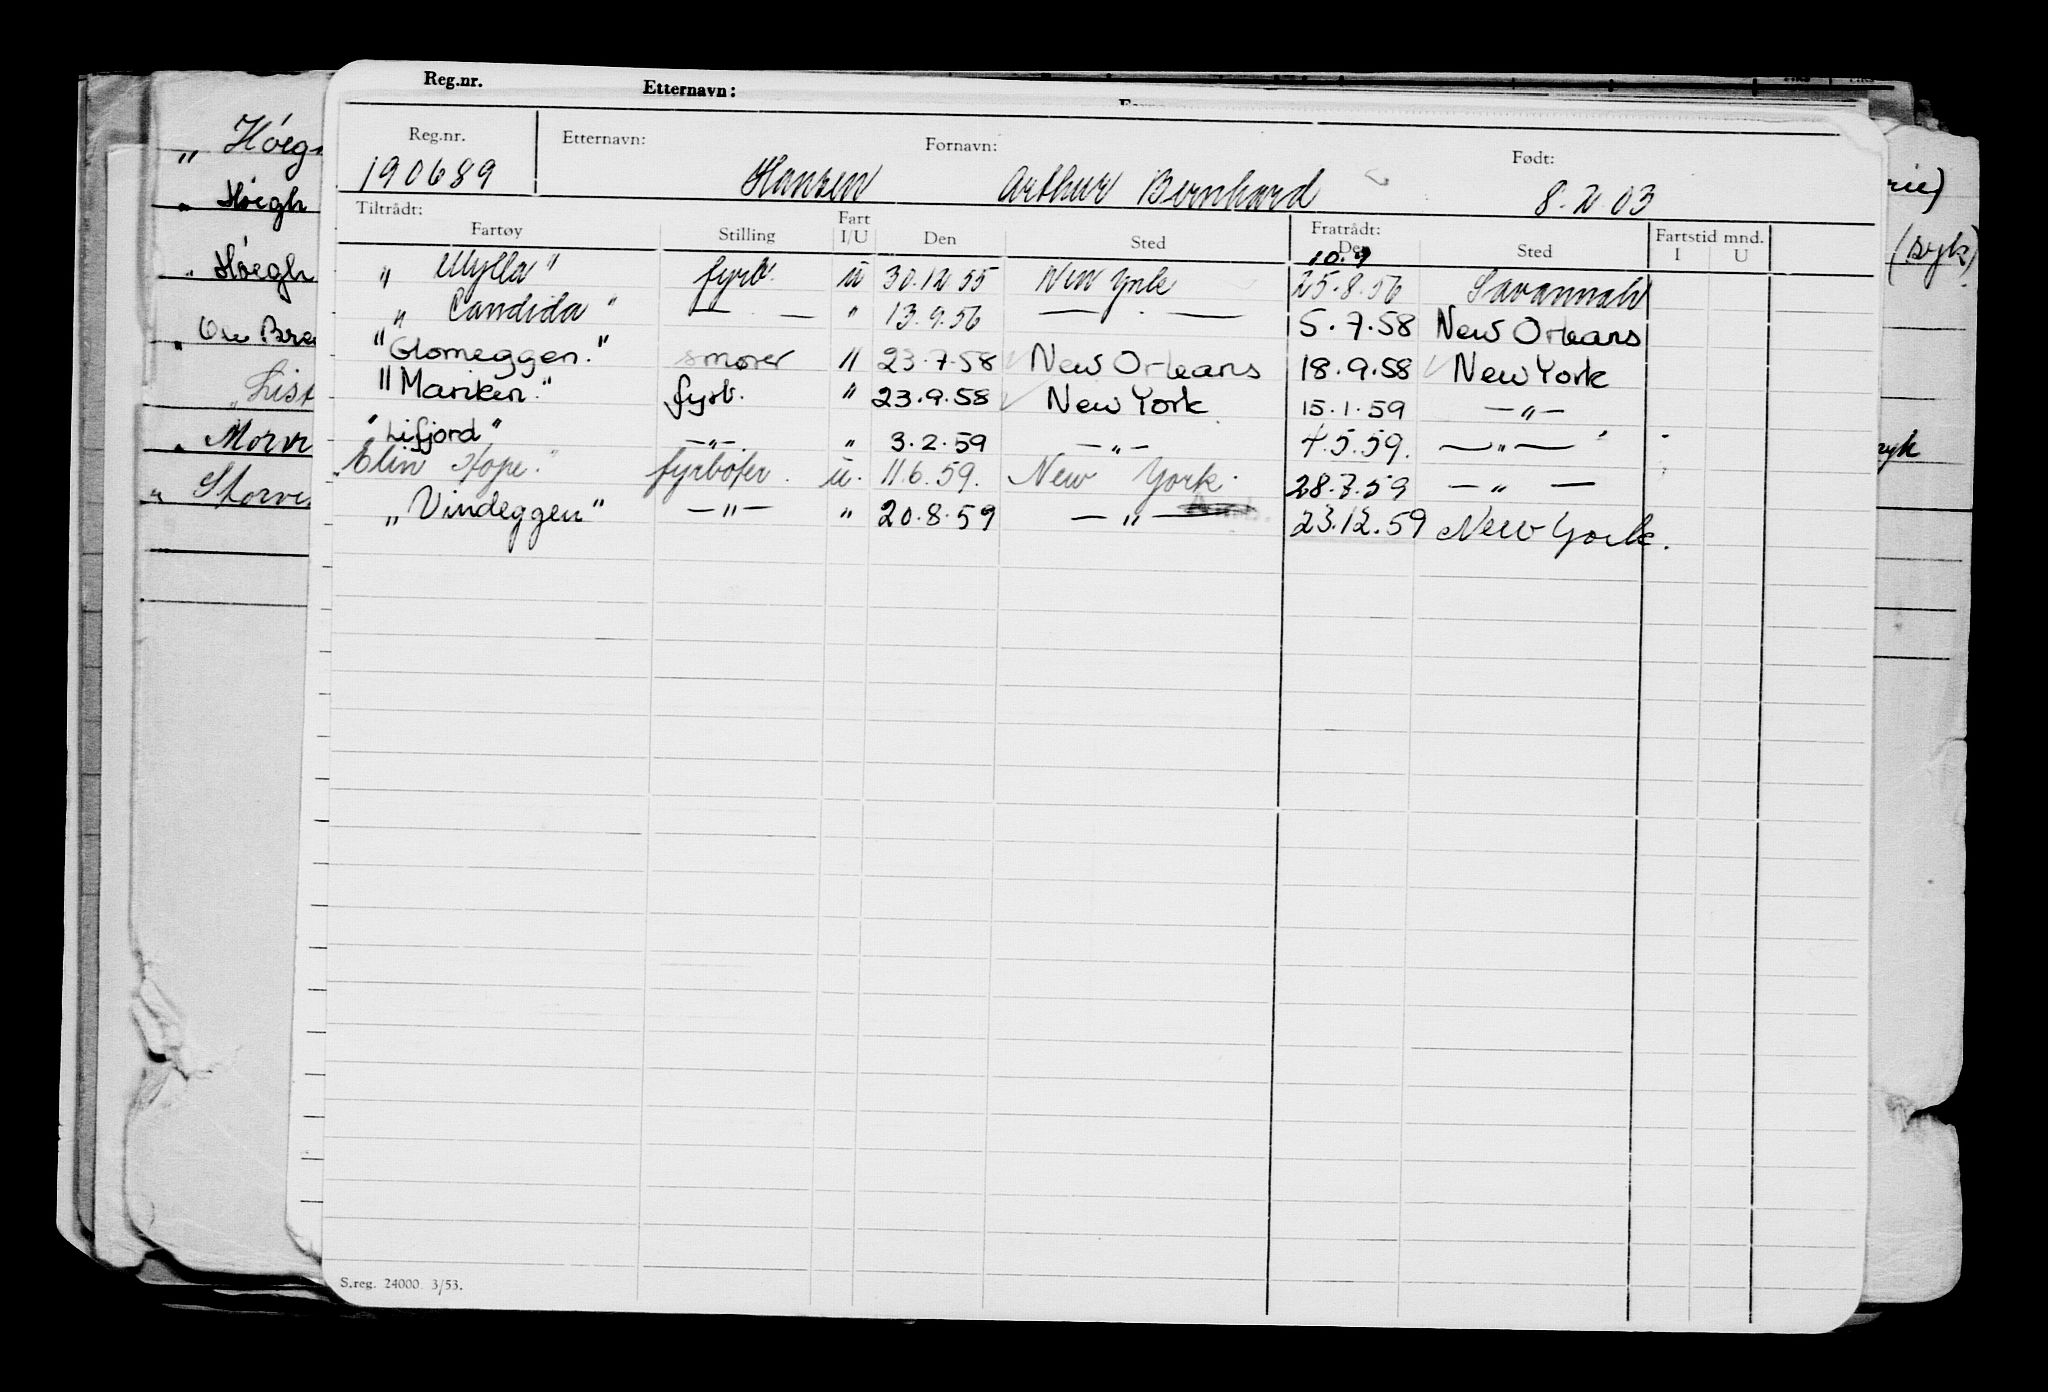 Reg.nr. Etternavn:
Reg.nr. Etternavn: Fornavn: Født:
190689 Hansen Arthur Bernhard 8.2.03
Tiltrådt: Fart Fratrådt: Fartstid mnd.
Fartøy Stilling I/U Den Sted Den Sted I U
10.9
" Mylla" fyrb. u 30.12.55 New York 25.8.56 Savannah
" Candida " — . — " 13.9.56 — . — 5.7.58 New Orleans
"Glomeggen." smører " 23.7.58 New Orleans 18.9.58 New York
" Mariken." fyrb. " 23.9.58 New York 15.1.59 — " —
"Lifjord" — " — " 3.2.59 — " — 4.5.59. — " —
"Elin Hope." fyrbøter. u. 11.6.59. New York. 28.7.59 — " —
"Vindeggen" — " — " 20.8.59 — " — 23.12.59 New York.
S.reg. 24000 3/53.
" Høegh
" Høegh
" Høegh
(syk)